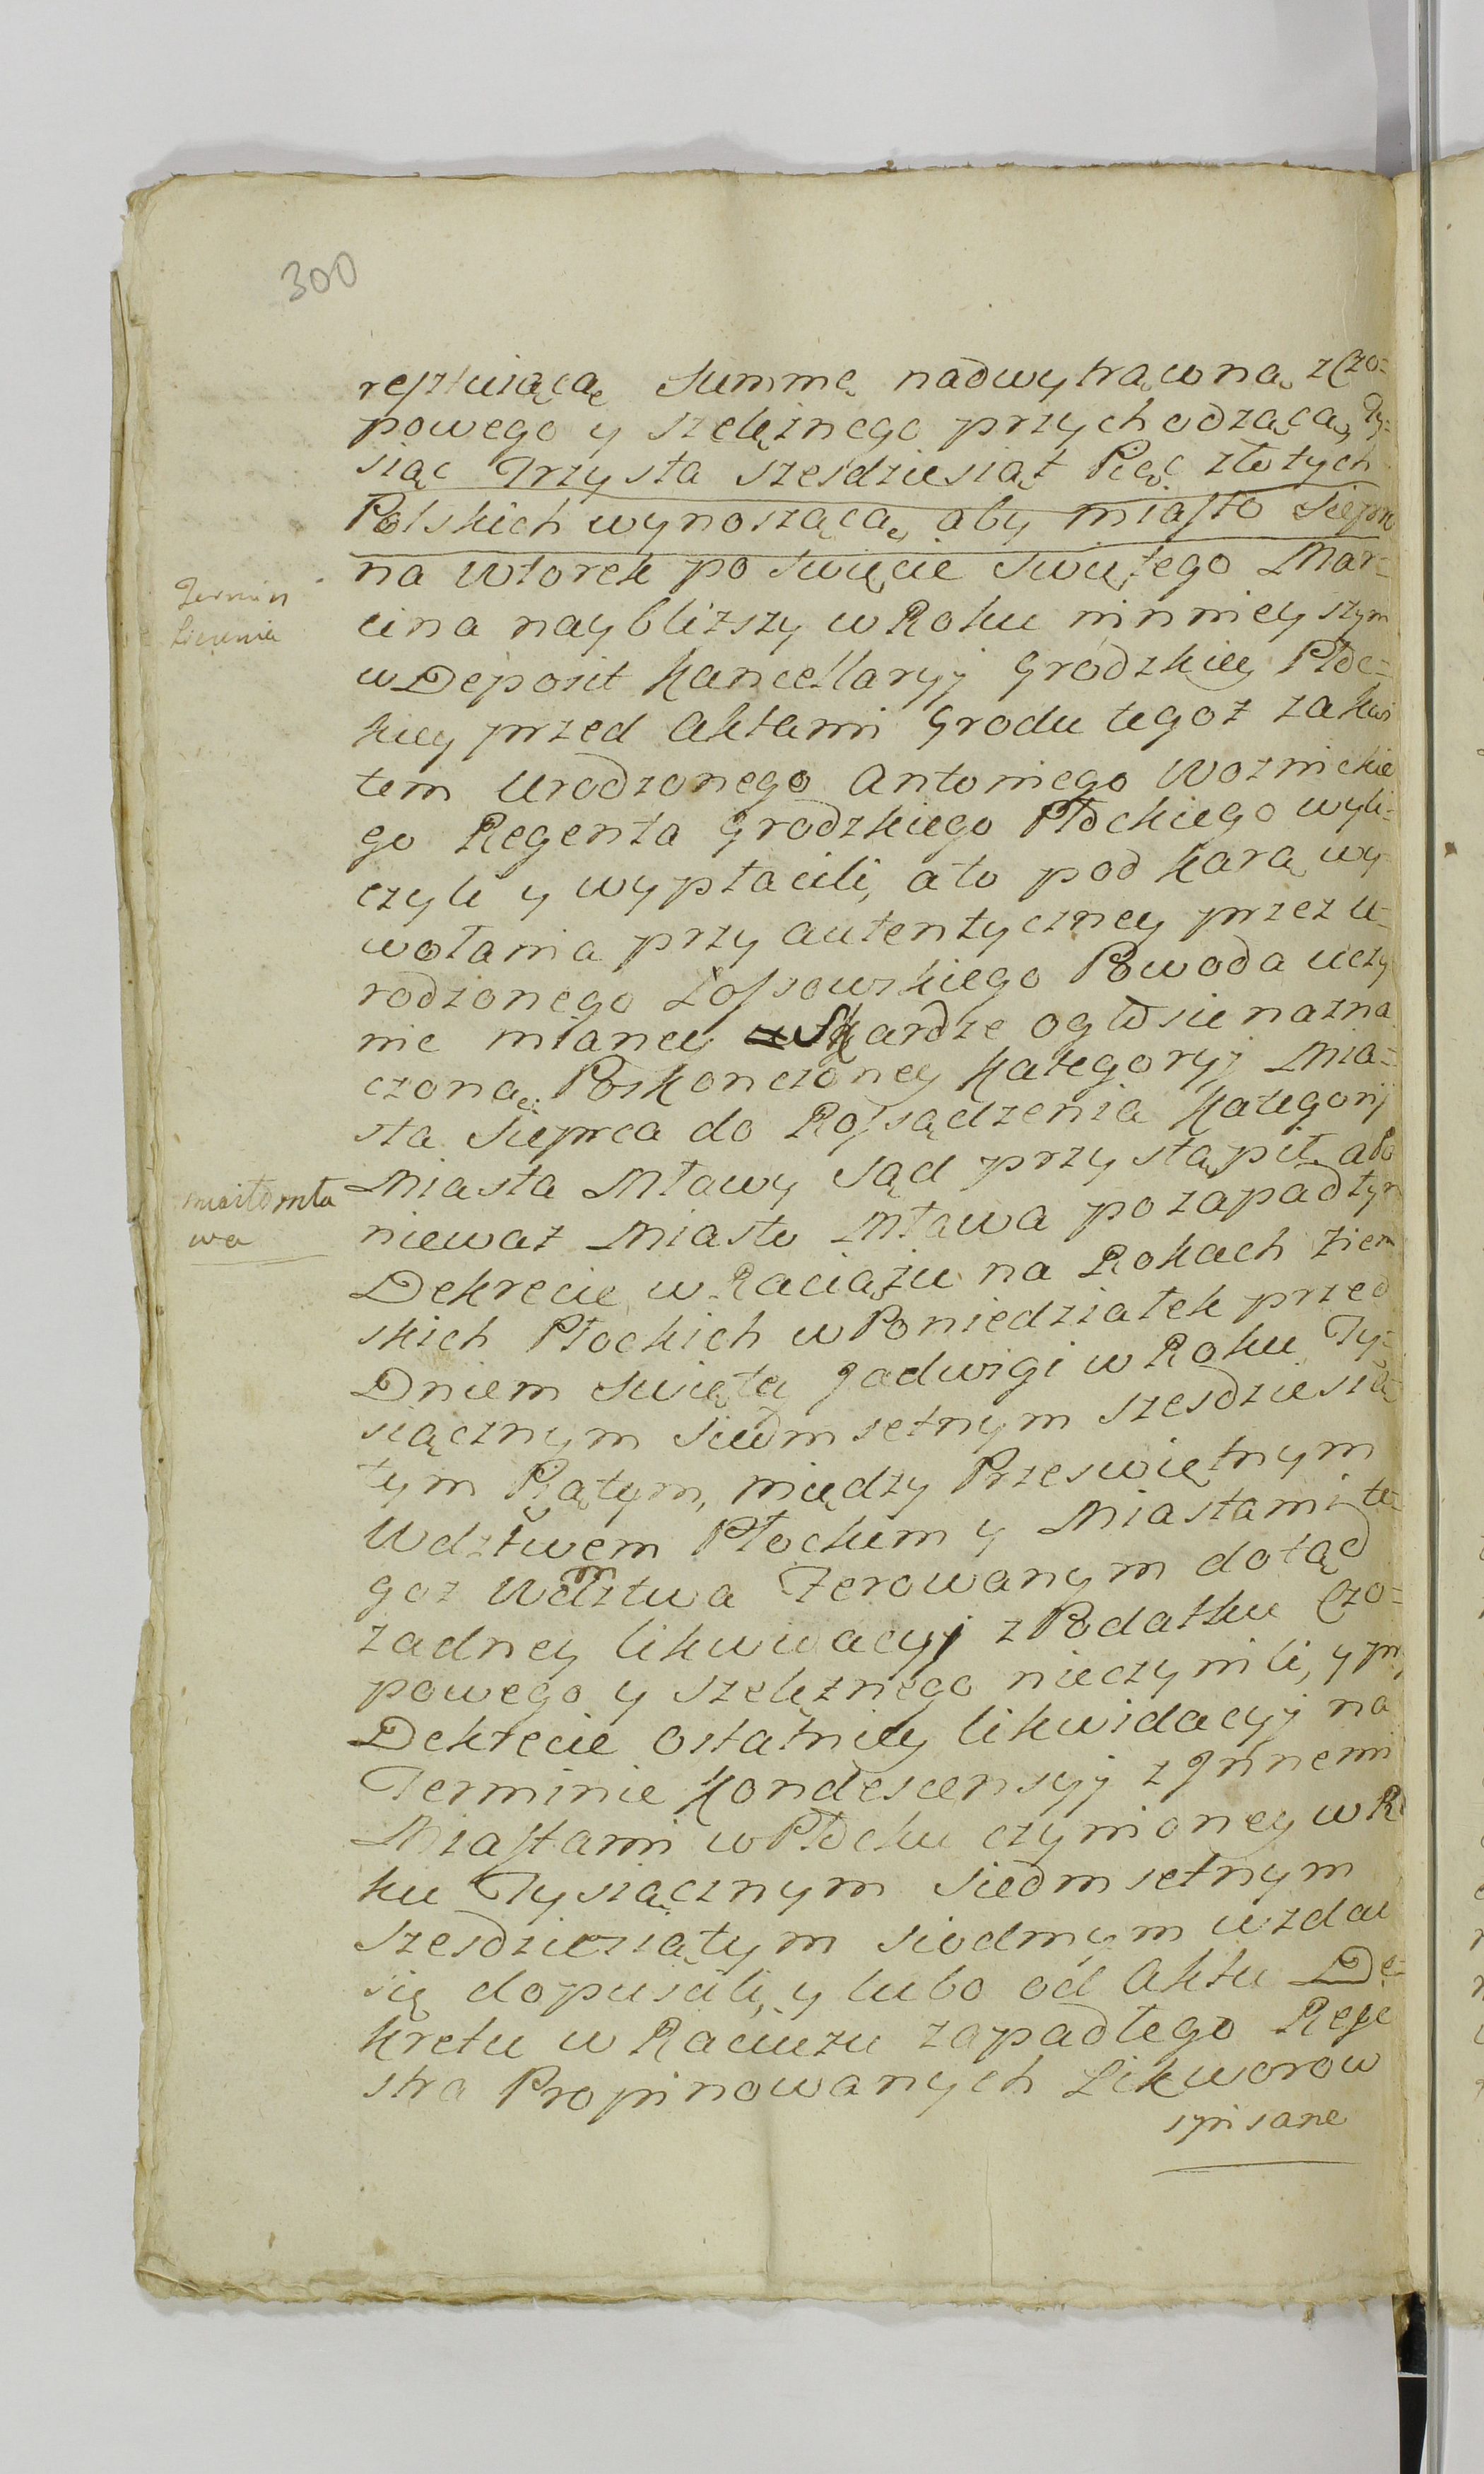 300
resztuiącą Summę nadwytrąwną, z Czo=
powego y szelężnego przychodzącą, Ty=
siąc Trzysta szesdziesiąt Pięć złotych
Polskich wynoszącą, aby miasto Sieprc
na wtorek po swięcie swiętego Mar=
Termin
cina naybliższy w Roku ninnieyszym
liczenia
w Deposit Kancellaryj Grodzkiey Płoc=
kiey przed Aktami Grodu tegoż za kwi
tem Urodzonego Antoniego Woznickie
go Regenta Grodzkiego Płockiego wyli=
czyli y wypłacili, a to pod karą wy=
wołania przy autentyczney przez U=
rodzonego Zossowskiego Powoda uczy
nic mianey Skardze ogłosie nazna
czoną. Poskonczoney Kategoryj Mia=
sta Sieprca do Rossądzenia Kategoryj
Miasta Mławy Sąd przystąpił, a Po
miasto Mła
niewaz Miasto Mława po zapadłym
wa
Dekrecie w Raciążu na Rokach Ziem
skich Płockich w Poniedziałek przed
Dniem Swiętey Jadwigi w Roku Ty=
siącznym siedmsetnym szesdziesią
tym Piątym, między Przeswiętnym
Wdztwem Płockim y Miastami te=
goz Wdztwa Ferowanym dotąd
zadney likwidacyj z Podatku Czo=
powego y szelężnego nieczynili, y przy
Dekrecie ostatniey likwidacyj na
Terminie Kondescensyj z Jnnemi
Miastami w Płocku czynioney w Ro
ku Tysiącznym siedmsetnym
szesdziesiątym siodmym wzdac
się dopuscili, y lubo od Aktu De=
kretu w Raciążu zapadłego Reje
stra Propinowanych Likworow
spisane